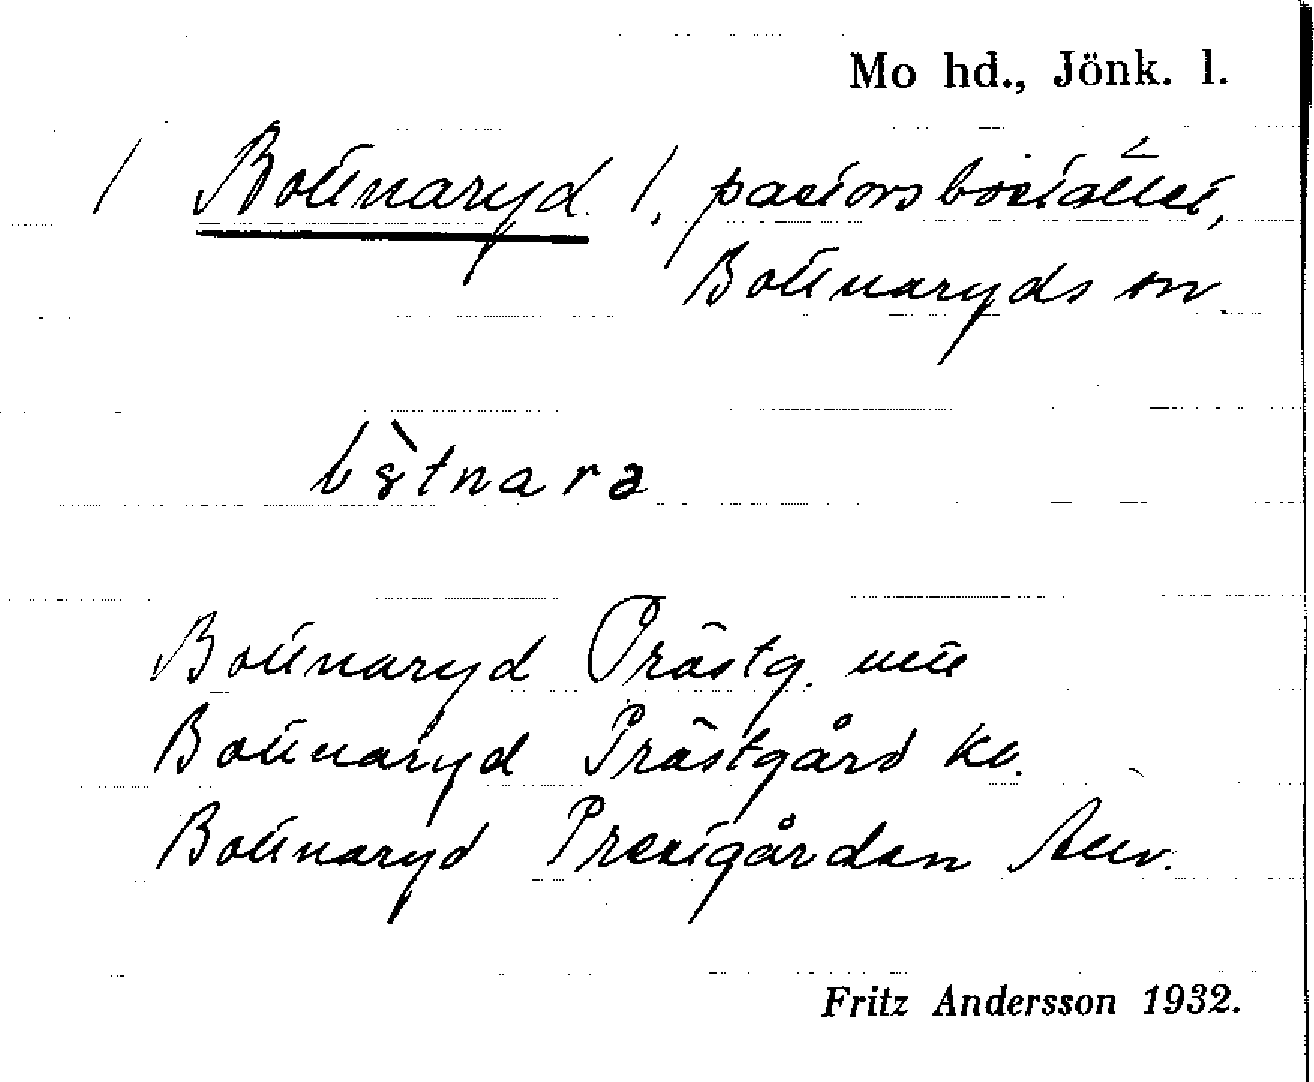 Mo hd., Jönk. l.
/ Bottnaryd /, pastorsbostället,
Bottnaryds sn.
Bottnaryd Prästg. utt
Bottnaryd Prästgård Ka.
Bottnaryd Prestgården
Fritz Andersson 1932.